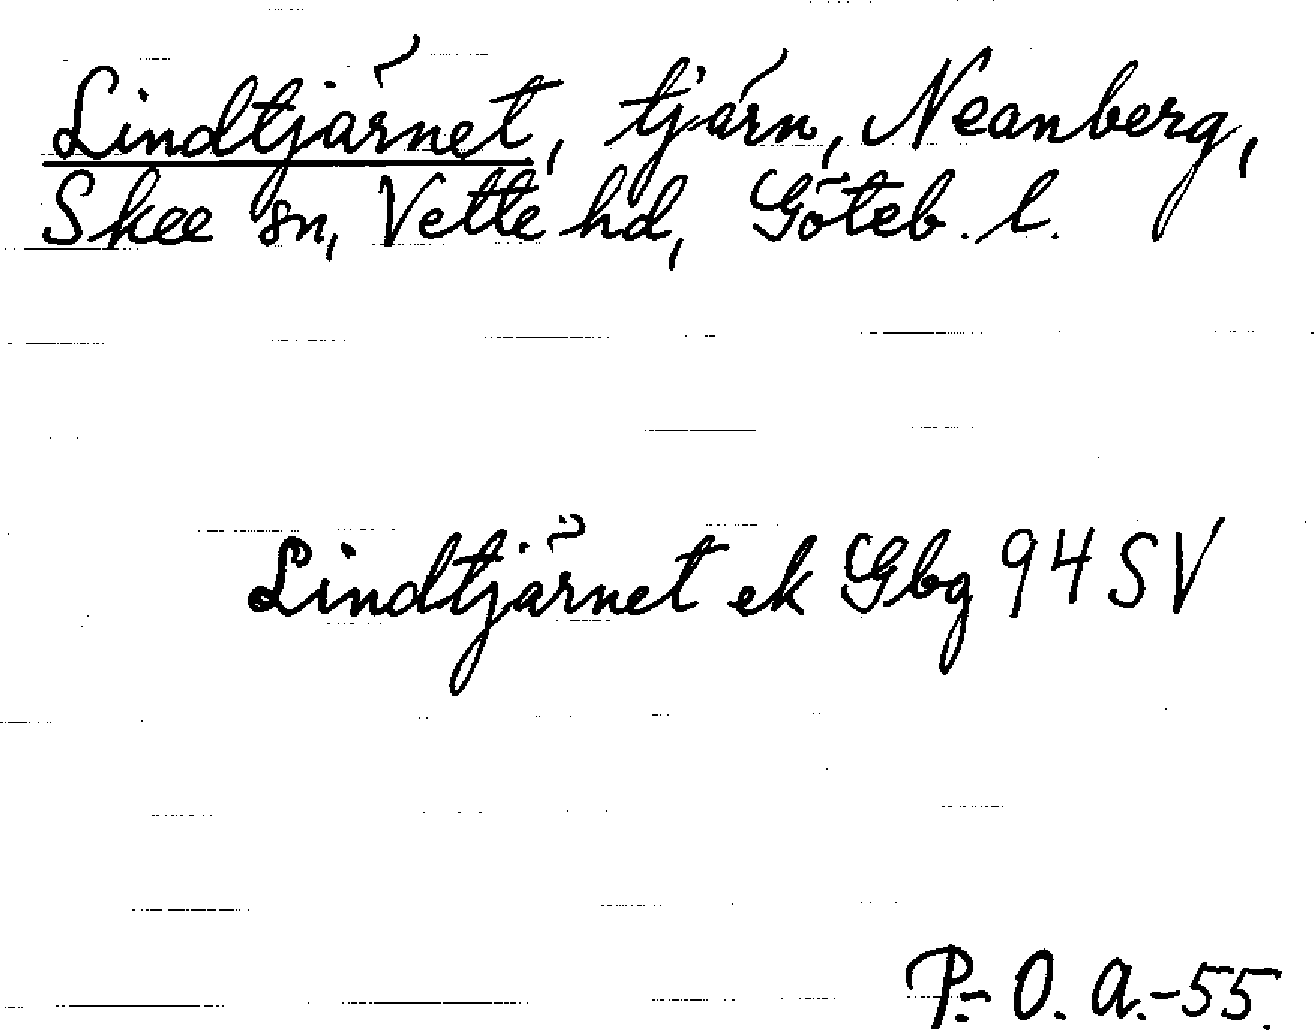 Lindtjärnet, tjärn, Neanberg,
Skee sn, Vette hd, Göteb. l.
Lindtjärnet ek Gbg 94 SV
P.-O. A.-55.